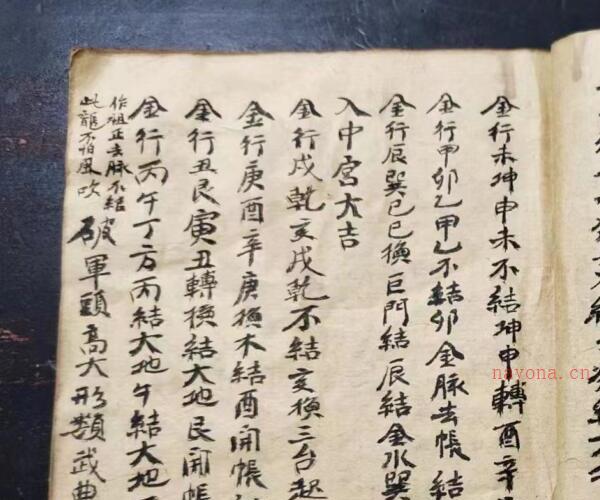 金行未坤申未不結坤申轉酉辛
金行甲卯乙甲乙不結卯金脉去帳結
金行辰巽巳巳換巨門結辰結金水巽
入中宮大吉
金行戌乾亥戌乾不結亥換三台起
金行庚酉辛庚換木結酉開帳結
金行丑艮寅丑轉換結大地艮開帳
金行丙午丁方丙結大地午結大地
作祖正去脉不結
此龍不怕風吹
破軍頭高大形類武曲
nayona.cn